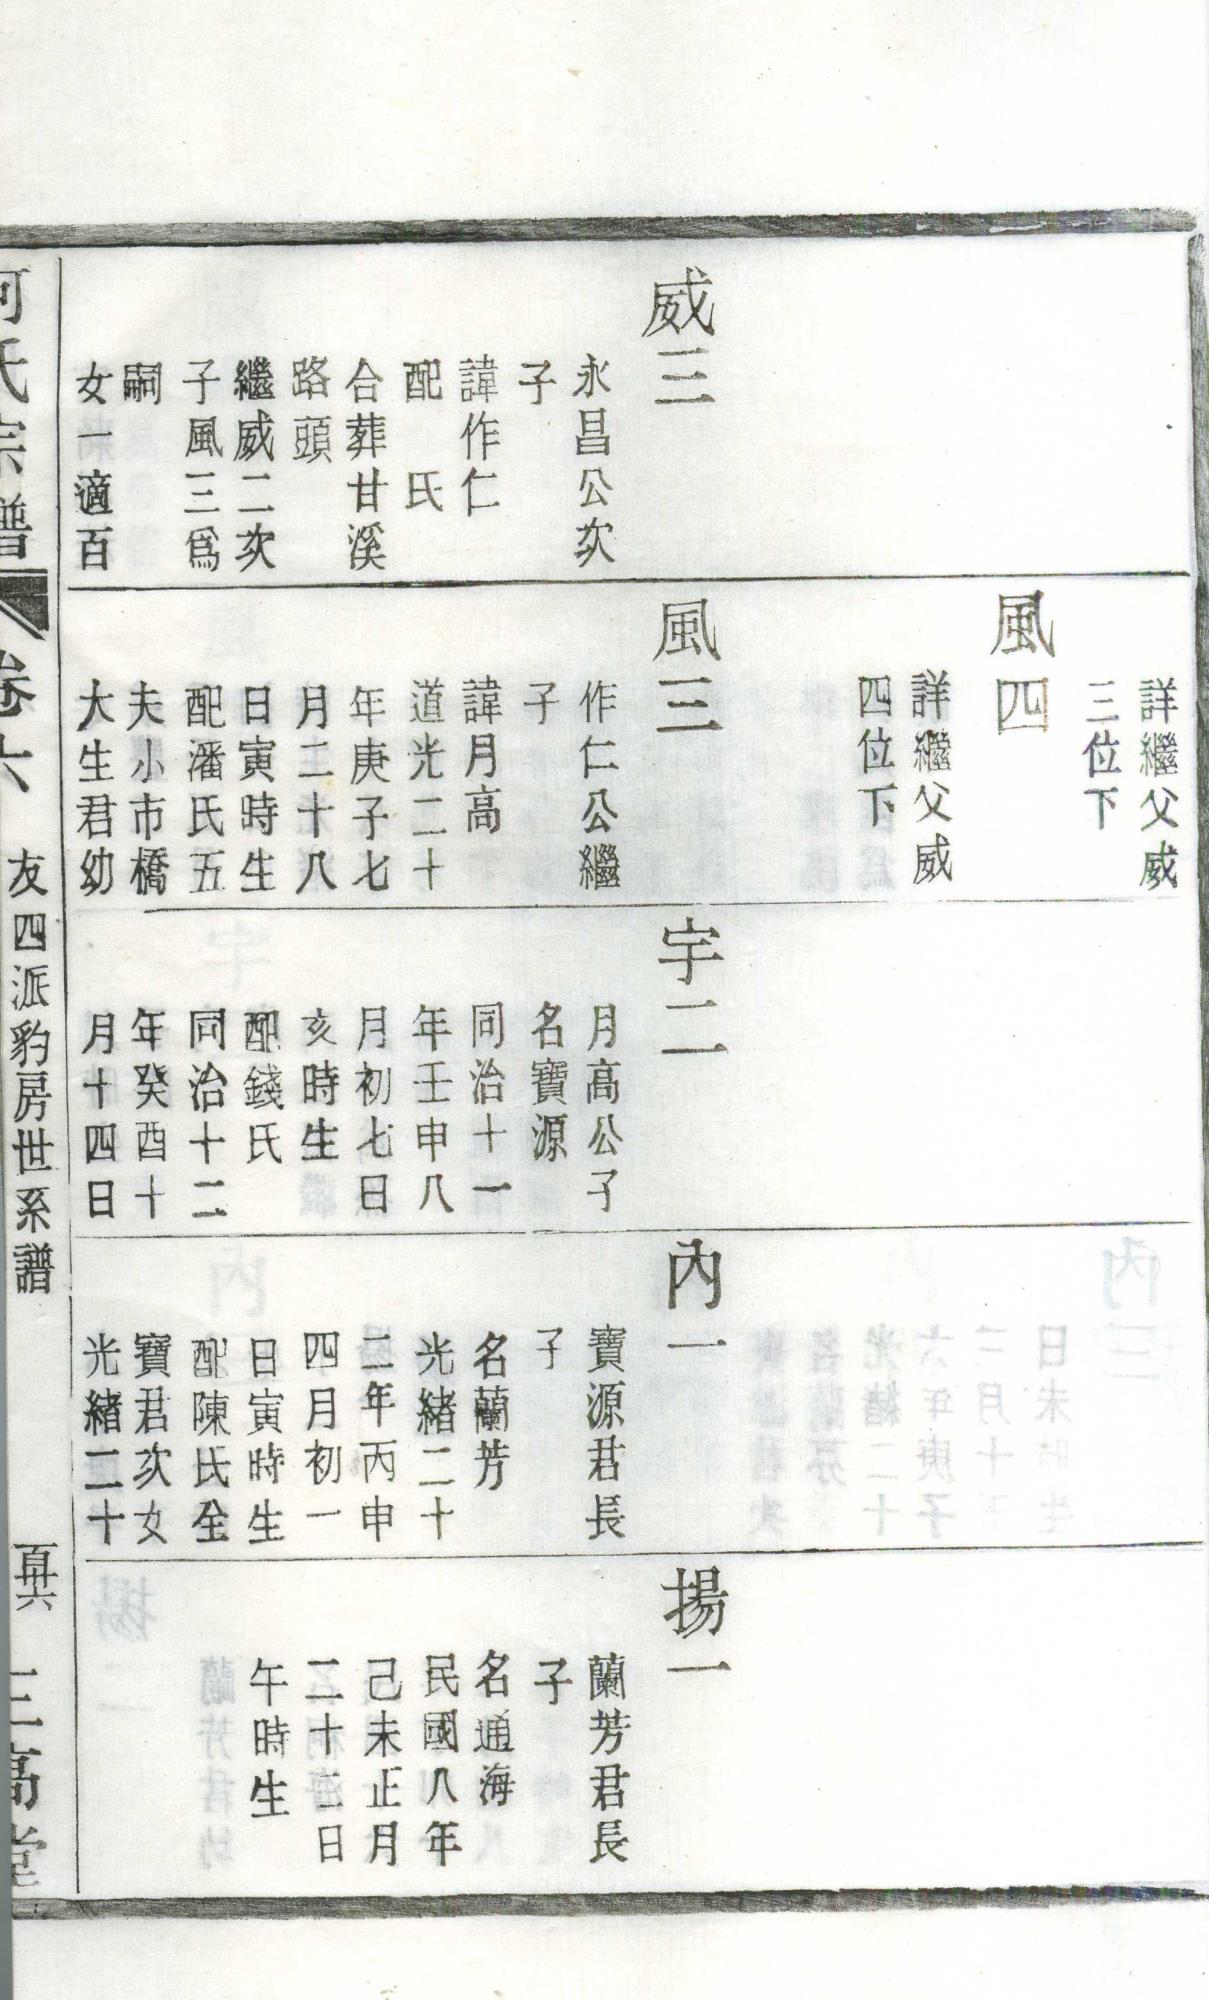 威三
永昌公次
子
諱作仁
配　氏
合葬甘溪
路頭
繼威二次
子風三爲
嗣
女一適百
詳繼父威
三位下
風四
詳繼父威
四位下
風三
作仁公繼
子
諱月高
道光二十
年庚子七
月二十八
日寅時生
配潘氏五
夫小市橋
大生君幼
宇二
月高公子
名寶源
同治十一
年壬申八
月初七日
亥時生
配錢氏
同治十二
年癸酉十
月十四日
內一
寶源君長
子
名蘭芳
光緒二十
二年丙申
四月初一
日寅時生
配陳氏全
寶君次女
光緒二十
揚一
蘭芳君長
子
名通海
民國八年
己未正月
二十二日
午時生
氏宗譜
卷六
友四派豹房世系譜
三高堂